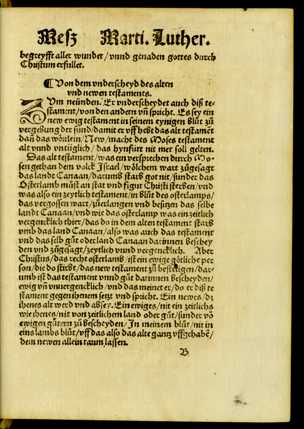 Mesz Marti. Luther.
begreyfft aller wunder/ vnnd gnaden gottes durch
Christum erfüllet.
¶ Von dem vnderscheyd des alten
vnd newen testaments.
Zum neünden. Er vnderscheydet auch diß te-
stament/ von den andern vñ spricht. Es sey ein
new ewig testament in seinem eynigen blůt zů
vergebung der sünd/ damit er vff hebt das alt testamẽt
dañ das wörtlein/ New/ macht des Moses testament
alt vnd vntüglich/ das hynfürt nit mer soll gelten.
Das alt testament/ was ein versprechen durch Mo-
sen gethan dem volck Israel/ wölchem wart zůgesagt
das landt Canaan/ darumb starb got nit/ sunder das
Osterlamb můst an stat vnd figur Christi sterben/ vnd
was also ein zeytlich testament/ in blůt des osterlamps/
das vergossen wart/ zů erlangen vnd besitzen das selbe
landt Canaan/ vnd wie das osterlamp was ein zeitlich
vergencklich thier/ das do in dem alten testament starb
vmb das land Canaan/ also was auch das testament
vnd das selb gůt oder land Canaan darinnen bescheyd-
den vnd zůgesagt/ zeytlich vnnd vergencklich. Aber
Christus/ das recht osterlamb/ ist ein ewige götliche per
son/ die do stirbt/ das new testament zů bestetigen/ dar-
umb ist das testament vnnd gůt darinnen bescheyden/
ewig vñ vnuergencklich/ vnd das meinet er/ do er diß te
stament gegen ihenem setzt vnd spricht. Ein newes/ dz
ihenes alt werd vnd absey. Ein ewiges/ nit ein zeitlichs
wie iheres/ nit von zeitlichem land oder gůt/ sunder võ
ewigen gůtern zů bescheyden/ In meinem blůt/ nit in
eins lambs blůt/ vff das also das alte gantz vffgehabẽ/
dem newen allein raum lassen.
B